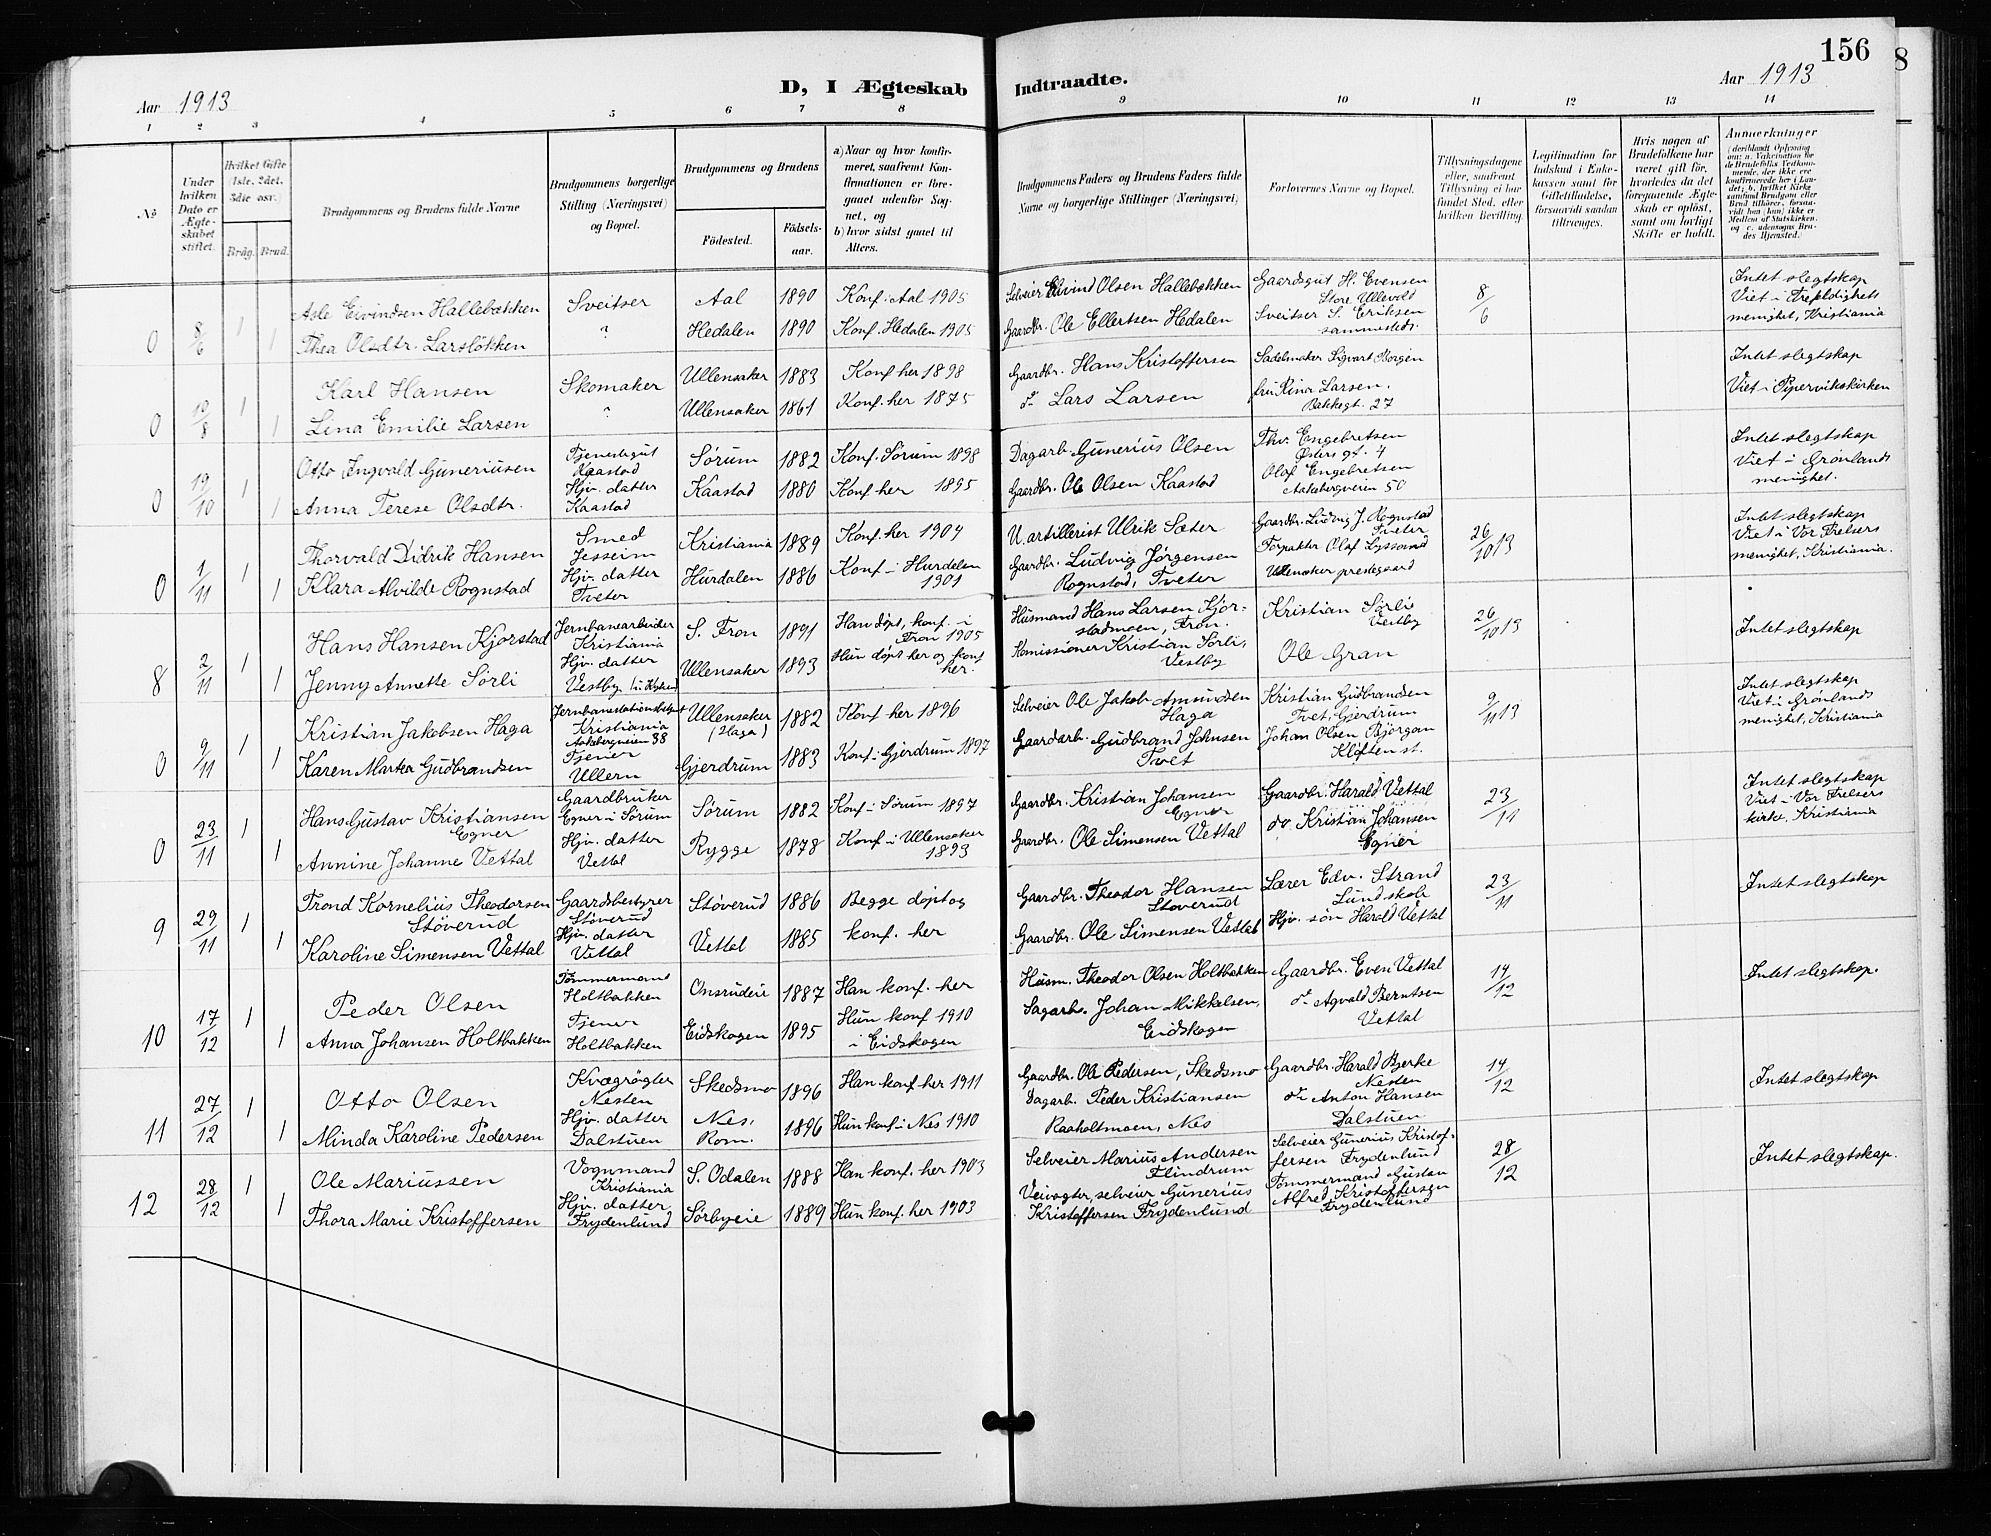 156
8
Aar 1913
D, I Ægteskab
Indtraadte.
Aar 1913
1 2 3 4 5 6 7 8 9 10 11 12 13 14
No
Under hvilken Dato er Ægteskabet stiftet.
Hvilket Gifte 1ste, 2det, 3die osv.
Brdg. Brud.
Brudgommens og Brudens fulde Navne
Brudgommens borgerlige Stilling (Næringsvei) og Bopæl.
Brudgommens og Brudens
Födested.
Födsels-aar.
a) Naar og hvor konfirmeret, saafremt Konfirmationen er foregaaet udenfor Sognet, og
b) hvor sidst gaaet til Alters.
Brudgommens Faders og Brudens Faders fulde Navne og borgerlige Stillinger (Næringsvei)
Forlovernes Navne og Bopæl.
Tillysningsdagene eller, saafremt Tillysning ei har fundet Sted, efter hvilken Bevilling.
Legitimation for Indskud i Enkekassen samt for Giftetilladelse, forsaavidt saadan tiltrænges.
Hvis nogen af Brudefolkene har været gift för, hvorledes da det foregaaende Ægteskab er oplöst, samt om lovligt Skifte er holdt.
Anmerkninger
(deriblandt Oplysning om: a. Vakcination for de Brudefolks Vedkommende, der ikke ere konfirmerede her i Landet; b. hvilket Kirkesamfund Brudgom eller Brud tilhörer, forsaavidt han (hun) ikke er Medlem af Statskirken, og c. udensogns Brudes Hjemsted.)
0 8/6 1 Asle Eivindsen Hallebækken Sveitser Aal 1890 Konf. i Aal 1905 Selveier Eivind Olsen Hallebækken Gaardsgut H. Evensen Store Ullevold 8/6 Intet slegtskap
1 Thea Olsdtr. Larsløkken ? Hedalen 1890 Konf. i Hedalen 1905 Gaardbr. Ole Ellertsen Hedalen Sveitser S. Eriksen sammesteds. Viet i Trefoldighets menighet, Kristiania
0 10/8 1 Karl Hansen Skomaker Ullensaker 1883 Konf. her 1898 Gaardbr. Hans Kristoffersen Sadelmaker Sigvart Borgen Intet slegtskap
1 Lina Emilie Larsen ? Ullensaker 1861 Konf. her 1875 do Lars Larsen fru Rina Larsen. Bakkegt. 27 Viet i Pipervikskirken
0 19/10 1 Otto Ingvald Guneriusen Tjenestegut Kaastad Sørum 1882 Konf. Sørum 1898 Dagarb. Gunerius Olsen Thv. Engebretsen Østersgt. 4 Intet slegtskap
1 Anna Terese Olsdtr. Hjv. datter Kaastad Kaastad 1880 Konf. her 1895 Gaardbr. Ole Olsen Kaastad Olaf Engebretsen Aakebergveien 50 Viet i Grønlands menighet.
0 1/11 1 Thorvald Didrik Hansen Smed Jesseim Kristiania 1889 Konf. her 1904 U. artillerist Ulrik Sæter Gaardbr. Ludvig J. Rognstad Tveter 26/10 13 Intet slegtskap
1 Klara Alvilde Rognstad Hjv. datter Tveter Hurdalen 1886 Konf. i Hurdalen 1901 Gaardbr. Ludvig Jørgensen Rognstad, Tveter Forpakter Olaf Lyssand Ullensaker prestegaard Viet i Vor Frelsers menighet, Kristiania.
8 2/11 1 Hans Hansen Kjorstad Jernbanearbeider Kristiania S. Fron 1891 Han døpt, konf. i Fron 1905 Husmand Hans Larsen Kjorstadmoen, Fron. Kristian Sørli Vestby 26/10 13 Intet slegtskap
1 Jenny Annette Sörli Hjv. datter Vestby Ullensaker 1893 Hun døpt her og konf her. Komissioner Kristian Sørli, Vestby Ole Gran
0 9/11 1 Kristian Jakobsen Haga Kristiania Aakebergveien 38 Ullensaker (Haga) 1882 Konf. her 1896 Selveier Ole Jakob Amundsen Haga Kristian Gudbrandsen Tvet, Gjerdrum 9/11 13 Intet slegtskap
1 Karen Martea Gudbrandsen Tjener Ullern Gjerdrum 1883 Konf. i Gjerdrum 1897 Gaardarb. Gudbrand Johnsen Tvet Johan Olsen Bjørgan Kløften st. Viet i Grønlands menighet, Kristiania
0 23/11 1 Hans Gustav Kristiansen Egner Gaardbruker Egner i Sørum Sørum 1882 Konf. i Sørum 1897 Gaardbr. Kristian Johansen Egner Gaardbr. Harald Vettal 23/11 Intet slegtskap
1 Annine Johanne Vettal Hjv. datter Vettal Rygge 1878 Konf. i Ullensaker 1893 Gaardbr. Ole Simensen Vettal do. Kristian Johansen Egner Viet i Vor Frelsers kirke, Kristiania
9 29/11 1 Trond Kornelius Theodorsen Støverud Gaardbestyrer Støverud Støverud 1886 Begge døpt og Gaardbr. Theodor Hansen Støverud Lærer Edv. Strand Lund skole 23/11 Intet slegtskap
1 Karoline Simensen Vettal Hjv. datter Vettal Vettal 1885 konf. her Gaardbr. Ole Simensen Vettal Hjv. søn Harald Vettal
10 17/12 1 Peder Olsen Tømmermand Holtbakken Onsrudeie 1887 Han konf. her Husm. Theodor Olsen Holtbakken Gaardbr. Even Vettal 14/12 Intet slegtskap.
1 Anna Johansen Holtbakken Tjener Holtbakken Eidskogen 1895 Hun konf 1910 i Eidskogen Sagarb. Johan Mikkelsen, Eidskogen do Agvald Berntsen Vettal
11 27/12 1 Otto Olsen Kvægrøgter Nesten Skedsmo 1896 Han konf her 1911 Gaardbr. Ole Pedersen, Skedsmo Gaardbr. Harald Bjerke Nesten 14/12 Intet slegtskap
1 Minda Karoline Pedersen Hjv. datter Dalstuen Nes, Rom. 1896 Hun konf. i Nes 1910 Dagarb. Peder Kristiansen Raaholtmoen, Nes do Anton Hansen Dalstuen
12 28/12 1 Ole Mariussen Vognmand Kristiania S. Odalen 1888 Han konf. her 1903 Selveier Marius Andersen Flindrum Selveier Gunerius Kristoffersen Frydenlund 28/12 Intet slegtskap.
1 Thora Marie Kristoffersen Hjv. datter Frydenlund Sörbyeie 1889 Hun konf. her 1903 Veivogter, selveier Gunerius Kristoffersen Frydenlund Tømmermand Gustav Alfred Kristoffersen Frydenlund